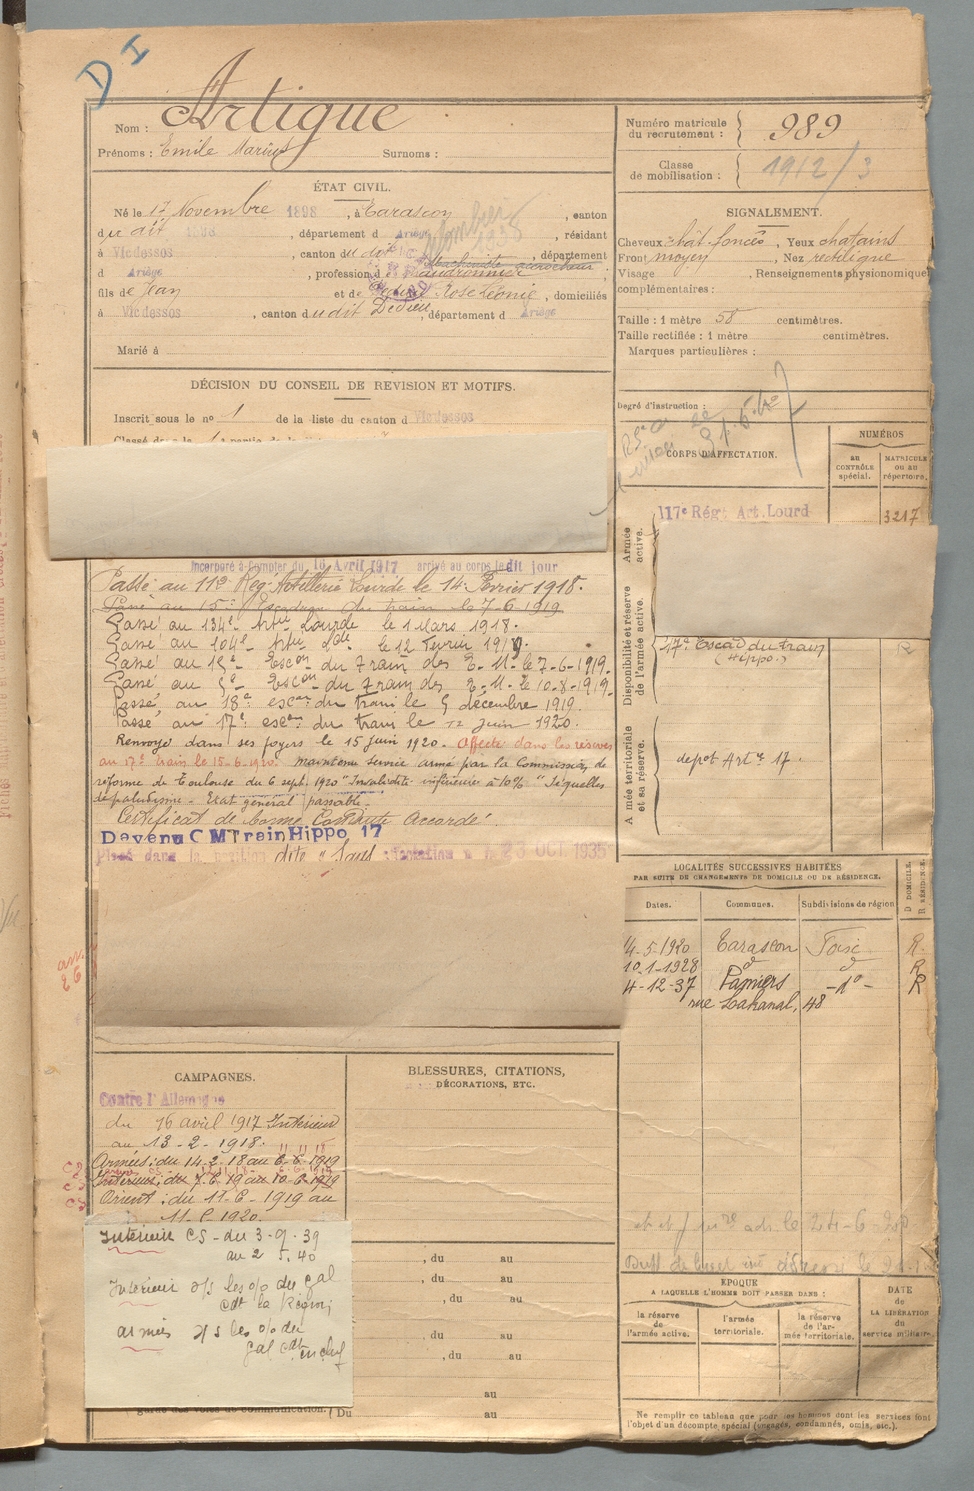 D I
Nom : Artigue
Prénoms : Emile Marius Surnoms :
Numéro matricule du recrutement : 989
Classe de mobilisation : 1912/3
ÉTAT CIVIL.
Né le 17 Novembre 1898, à Tarascon, canton
du dit, département d Ariège, résidant
à Vicdessos, canton du dit, département
d Ariège, profession de chaudronnier
fils de Jean et de Rose Léonie, domiciliés
à Vicdessos, canton du dit Dedieu, département d Ariège
Marié à
SIGNALEMENT.
Cheveux chât. foncés, Yeux chatains
Front moyen, Nez rectiligne
Visage, Renseignements physionomiques
complémentaires :
Taille : 1 mètre 58 centimètres.
Taille rectifiée : 1 mètre centimètres.
Marques particulières :
Degré d'instruction :
DÉCISION DU CONSEIL DE REVISION ET MOTIFS.
Inscrit sous le no 1 de la liste du canton d Vicdessos
CORPS D'AFFECTATION.
NUMÉROS
au contrôle spécial.
matricule ou au répertoire.
Armée active.
117e Régt Art. Lourd 3217
Disponibilité et réserve de l'armée active.
17e Escad du train R
(Hippo.)
Armée territoriale et sa réserve.
depot Art ie 17.
Incorporé à compter du 16 Avril 1917 arrivé au corps le dit jour
Passé au 117e Reg Artillerie Lourde le 14 Fevrier 1918.
Passé au 15e Escadron du train le 7-6-1919
Passé au 134e Artie Lourde le 1 Mars 1918.
Passé au 104e Artie Lde le 12 Fevrier 1919.
Passé au 15e Escon du Train des E. M. le 7-6-1919.
Passé au 5e Escon du Train des E. M. le 10-8-1919
Passé au 18e escon du train le 5 décembre 1919.
Passé au 17e escon du train le 12 juin 1920.
Renvoyé dans ses foyers le 15 juin 1920. Affecté dans les réserves
au 17e train le 15-6-1920. Maintenu service armé par la Commission de
réforme de Toulouse du 6 sept. 1920 "Invalidité inférieure à 10%" "Séquelles
de paludisme - Etat général passable.
Certificat de bonne Conduite Accordé.
Devenu C M Train Hippo 17
Placé dans la position dite "Sans affectation" le 23 OCT 1935
LOCALITÉS SUCCESSIVES HABITÉES
PAR SUITE DE CHANGEMENTS DE DOMICILE OU DE RÉSIDENCE.
Dates. Communes. Subdivisions de région D DOMICILE. R RÉSIDENCE.
14-5-1920 Tarascon Foix R.
10-1-1928 d° d° R
4-12-37 Pamiers -d°- R
rue Lakanal, 48
CAMPAGNES.
Contre l'Allemagne
du 16 avril 1917 Intérieur
au 13-2-1918.
Armées : du 14-2-18 au 6-6-1919
Intérieur : du 7-6-19 au 10-6-1919
Orient : du 11-6-1919 au
Intérieur CS - du 3-9-39
au 2 5.40
Intérieur o/s les o/o du gal
Cdt la Région
armées o/s les o/o du
gal Cdt en chef
BLESSURES, CITATIONS,
DÉCORATIONS, ETC.
, du au
, du au
, du au
, du au
, du au
au
Du au
EPOQUE
A LAQUELLE L'HOMME DOIT PASSER DANS :
la réserve de l'armée active.
l'armée territoriale.
la réserve de l'armée territoriale.
DATE de LA LIBÉRATION du service militaire.
Ne remplir ce tableau que pour les hommes dont les services font
l'objet d'un décompte spécial (engagés, condamnés, omis, etc.).